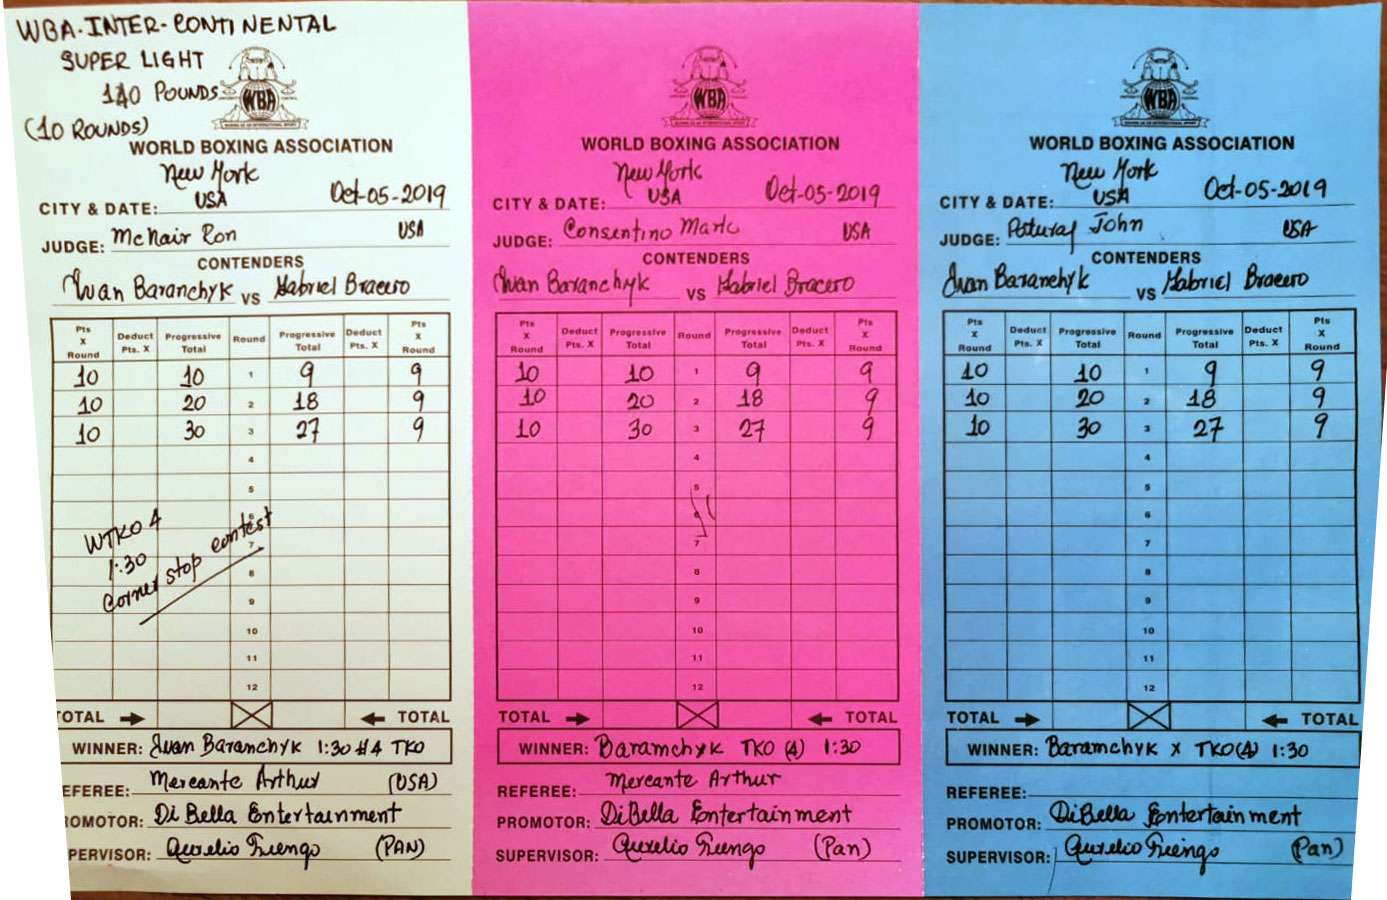 WBA-INTER-CONTINENTAL
SUPER LIGHT
140 POUNDS
(10 ROUNDS)
WBA
WORLD BOXING ASSOCIATION
New York
CITY & DATE: USA Oct-05-2019
JUDGE: McNair Ron USA
CONTENDERS
Ivan Baranchyk VS Gabriel Bracero
Pts X Round Deduct Pts. X Progressive Total Round Progressive Total Deduct Pts. X Pts X Round
10 10 1 9 9
10 20 2 18 9
10 30 3 27 9
4
5
6
7
8
9
10
11
12
WTKO 4
1:30
Corner stop contest
TOTAL TOTAL
WINNER: Ivan Baranchyk 1:30 #4 TKO
EFEREE: Mercante Arthur (USA)
ROMOTOR: Di Bella Entertainment
PERVISOR: Aurelio Fiengo (PAN)
WBA
WORLD BOXING ASSOCIATION
New York
CITY & DATE: USA Oct-05-2019
JUDGE: Consentino Mark USA
CONTENDERS
Ivan Baranchyk VS Gabriel Bracero
Pts X Round Deduct Pts. X Progressive Total Round Progressive Total Deduct Pts. X Pts X Round
10 10 1 9 9
10 20 2 18 9
10 30 3 27 9
4
5
6
7
8
9
10
11
12
TOTAL TOTAL
WINNER: Baramchyk TKO (4) 1:30
REFEREE: Mercante Arthur
PROMOTOR: DiBella Entertainment
SUPERVISOR: Aurelio Fiengo (Pan)
WBA
WORLD BOXING ASSOCIATION
New York
CITY & DATE: USA Oct-05-2019
JUDGE: Poturaj John USA
CONTENDERS
Ivan Baranchyk VS Gabriel Bracero
Pts X Round Deduct Pts. X Progressive Total Round Progressive Total Deduct Pts. X Pts X Round
10 10 1 9 9
10 20 2 18 9
10 30 3 27 9
4
5
6
7
8
9
10
11
12
TOTAL TOTAL
WINNER: Baramchyk X TKO(4) 1:30
REFEREE:
PROMOTOR: DiBella Entertainment
SUPERVISOR: Aurelio Fiengo (Pan)